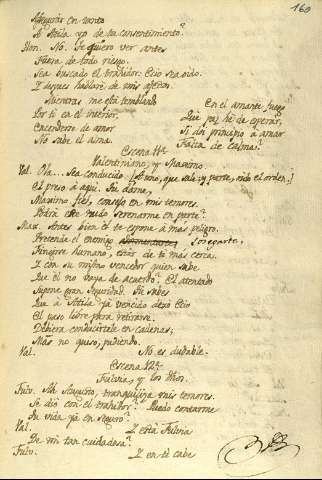 160
Asegurar en tanto
A Attila yá de tu consentimiento?
Hon. No. Te quiero ver antes
Fuera de todo riesgo.
Sea buscado el trahidor: Ecio sea oido.
Y despues hablaré de mis afectos.
Mientras me está temblando
Por ti en el interior,
Encenderse de amor
No sabe el alma.
En el amante fuego
Que paz he de esperar,
Si dan principio a amar
Falta de calma?
Escena 11ª
Valentiniano, y Maximo.
Val. Ola... Sea conducido (Let uno, que sale, y parte, oido el orden.)
El preso á aquí. Tú dame,
Maximo fiel, consejo en mis temores.
Podrá este ruido serenarme en parte?
Max. Antes bien él te expone á mas peligro.
Pretende el enemigo sosegarte,
Fingirse humano, tirar de ti mas cerca.
Y con su mismo vencedor quien sabe
Que él no vaya de acuerdo? El atentado
Supone gran seguridad. Tu sabes
Que á Attila yá vencido dexó Ecio
El paso libre para retirarse.
Debiera conducirtele en cadenas;
Mas no quiso, pudiendo.
Val. No es dudable.
Escena 12ª
Fulvia, y los dhos.
Fulv. Ah Augusto, tranquiliza mis temores.
Se dió con el trahidor? Puedo contarme
Tu vida yá en seguro?
Val. Y está Fulvia
De mi tan cuidadosa?
Fulv. Y en ti cabe